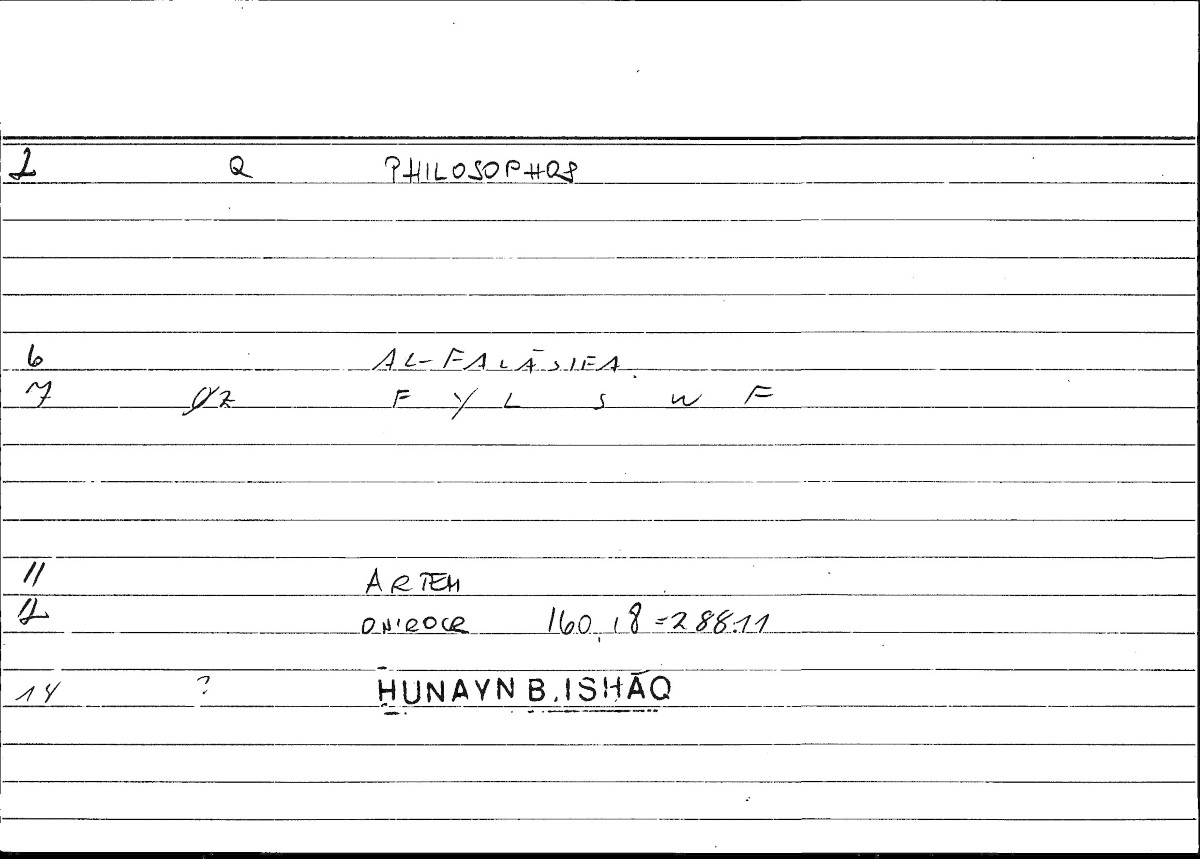 1 Q PHILOSOPHOS
6 AL-FALĀSIFA
7 Z F Y L S W F
11 ARTEM
12 ONIROCR 160,18=288.11
14 ? HUNAYN B. ISHĀQ